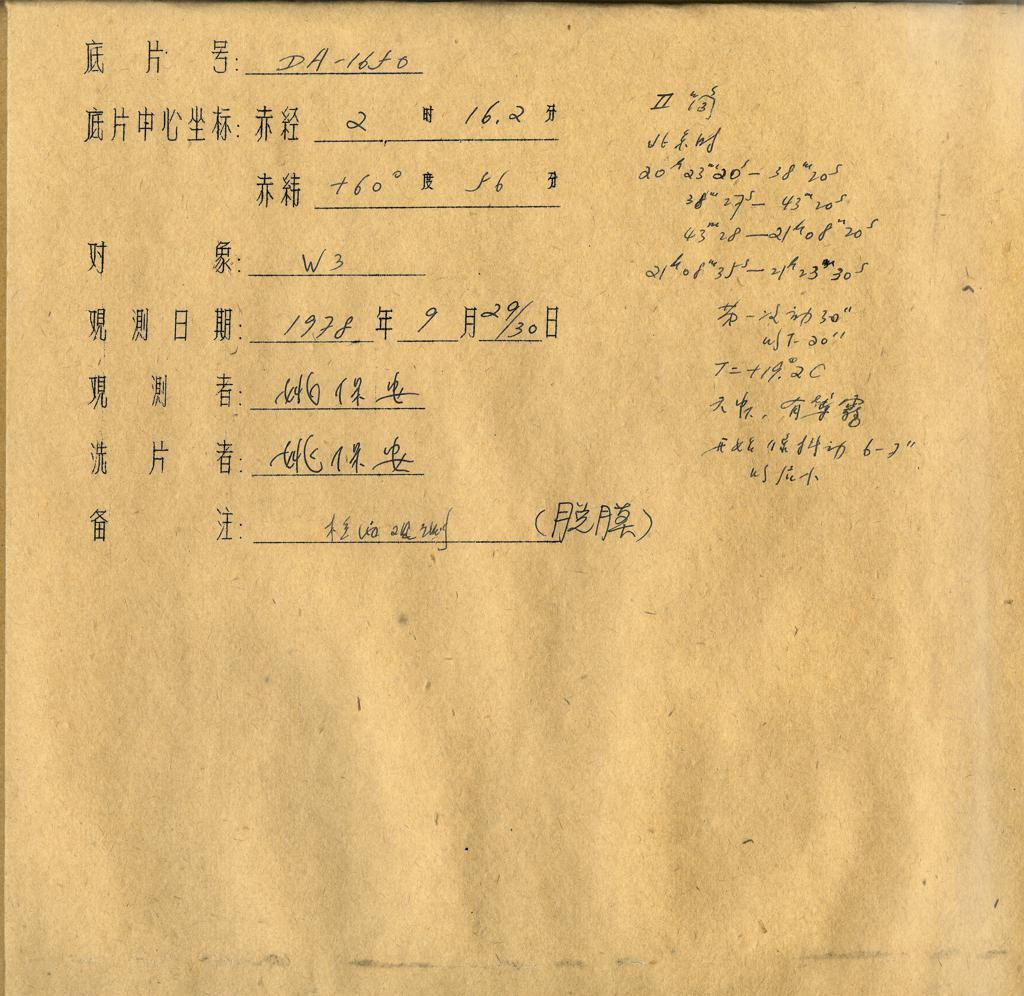 底片号: DA-1650
底片中心坐标: 赤经 2 时 16.2 分
赤纬 +60° 度 56 分
对象: W3
观测日期: 1978 年 9 月 29/30 日
观测者: 姚保安
洗片者: 姚保安
备注: (脱膜)
II
北京时
20ʰ23ᵐ20ˢ—38ᵐ20ˢ
38ᵐ27ˢ—43ᵐ20ˢ
43ᵐ28—21ʰ08ᵐ20ˢ
21ʰ08ᵐ35ˢ—21ʰ23ᵐ30ˢ
第一次动30"
以下20"
T=+19.°2C
有薄雾
6-7"
以后小